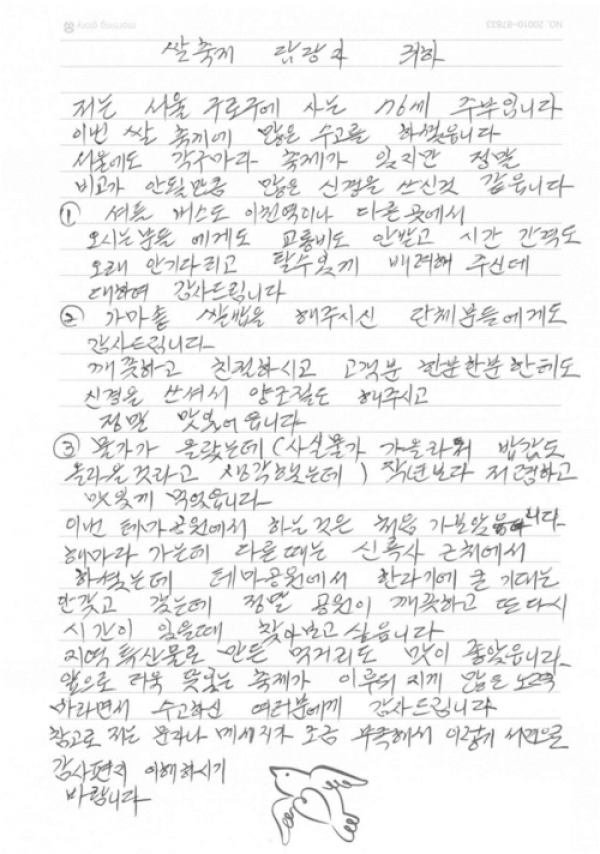 NO. 20010-87833
morning glory
쌀축제 담당자 귀하
저는 서울 구로구에 사는 76세 주부입니다
이번 쌀 축제에 많은 수고를 하셨읍니다
서울에도 각구마다 축제가 있지만 정말
비교가 안될만큼 많은 신경을 쓰신것 같읍니다
① 셔틀 버스도 이천역이나 다른곳에서
오시는분들 에게도 교통비도 안받고 시간 간격도
오래 안기다리고 탈수있게 배려해 주신데
대하여 감사드립니다
② 가마솥 쌀밥을 해주시신 단체분들에게도
감사드립니다
깨끗하고 친절하시고 고객분 한분한분한테도
신경을 쓰셔서 양조절도 해주시고
정말 맛있어읍니다
③ 물가가 올랐는데 (사실물가 가올라서 밥값도
올라올것라고 생각했는데) 작년보다 저렴하고
맛있게 먹었읍니다
이번 테마공원에서 하는것은 처음 가보았읍니다
해마라 가는데 다른때는 신륵사 근처에서
하셨는데 테마공원에서 한라기에 큰 기대는
안갖고 갔는데 정말 공원이 깨끗하고 또다시
시간이 있을때 찾아보고 싶읍니다
지역 특산물로 만든 먹거리도 맛이 좋았읍니다
앞으로 더욱 뜻있는 축제가 이루워 지게 많은 노력
바라면서 수고하신 여러분에게 감사드립니다
참고로 저는 문자나 메세지가 조금 부족해서 이렇게 서면으로
감사편지 이해하시기
바랍니다